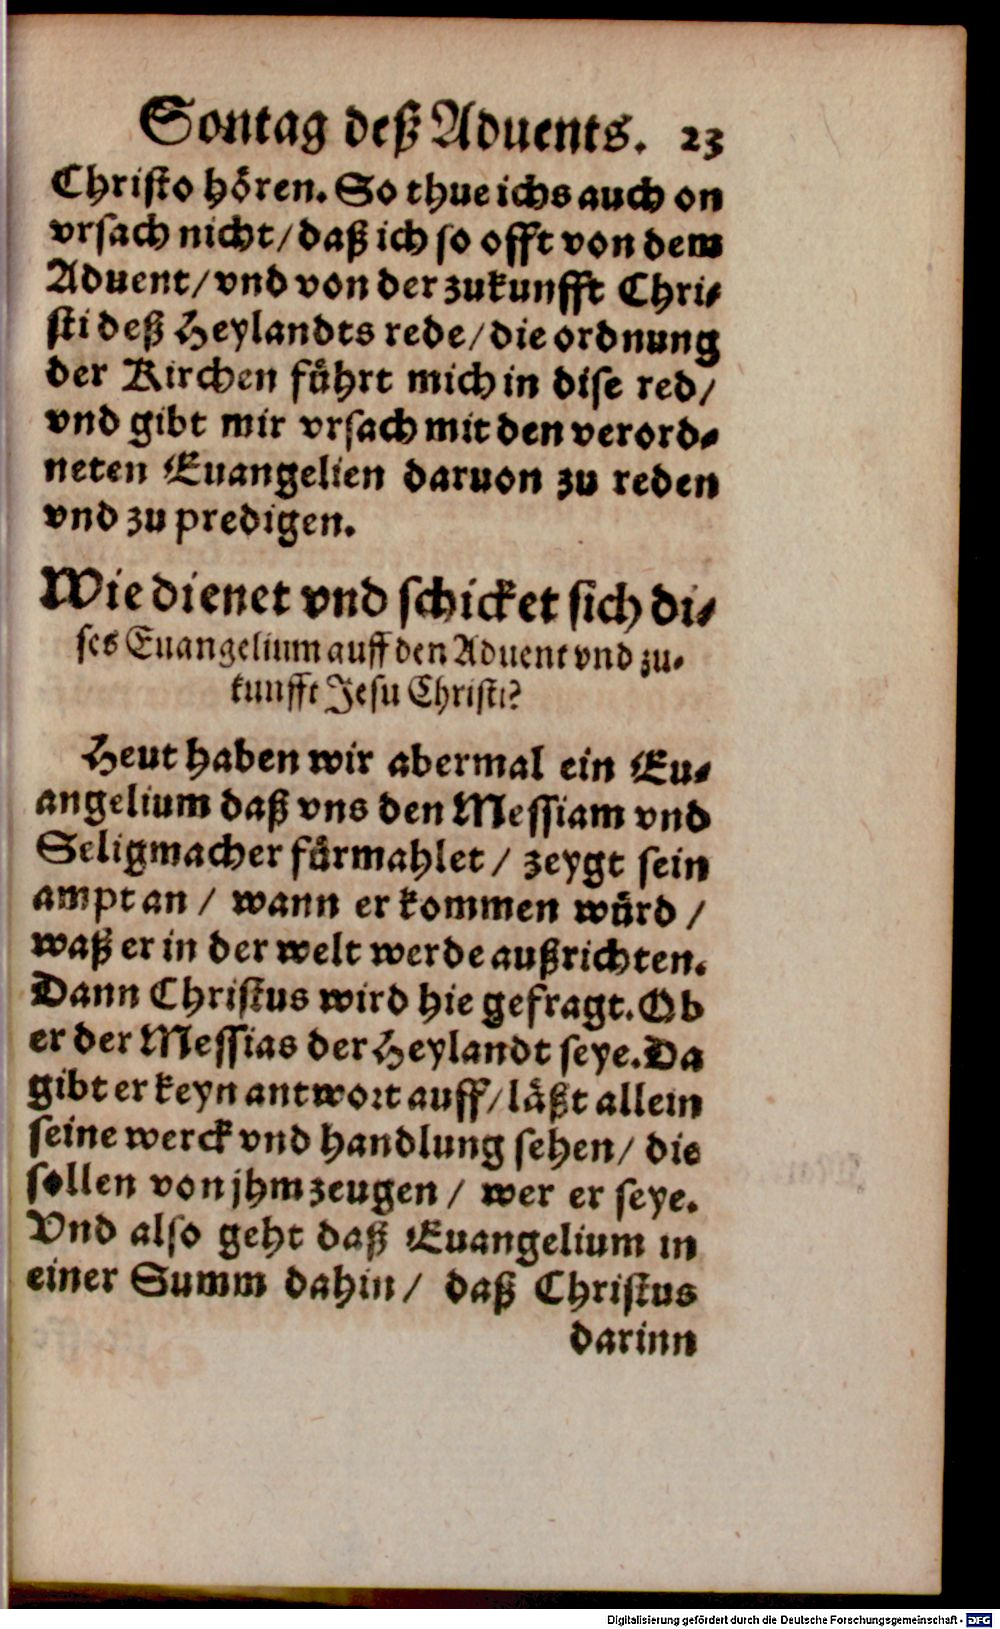 Sontag deß Aduents. 23
Christo hören. So thue ichs auch on
vrsach nicht/ daß ich so offt von dem
Aduent/ vnd von der zukunfft Chri-
sti deß Heylandts rede/ die ordnung
der Kirchen führt mich in dise red/
vnd gibt mir vrsach mit den verord-
neten Euangelien daruon zu reden
vnd zu predigen.
Wie dienet vnd schicket sich di-
ses Euangelium auff den Aduent vnd zu-
kunfft Jesu Christi?
Heut haben wir abermal ein Eu-
angelium daß vns den Messiam vnd
Seligmacher fürmahlet / zeygt sein
ampt an / wann er kommen würd /
waß er in der welt werde außrichten.
Dann Christus wird hie gefragt. Ob
er der Messias der Heylandt seye. Da
gibt er keyn antwort auff/ läßt allein
seine werck vnd handlung sehen/ die
sollen von jhm zeugen / wer er seye.
Vnd also geht daß Euangelium in
einer Summ dahin/ daß Christus
darinn
Digitalisierung gefördert durch die Deutsche Forschungsgemeinschaft - DFG